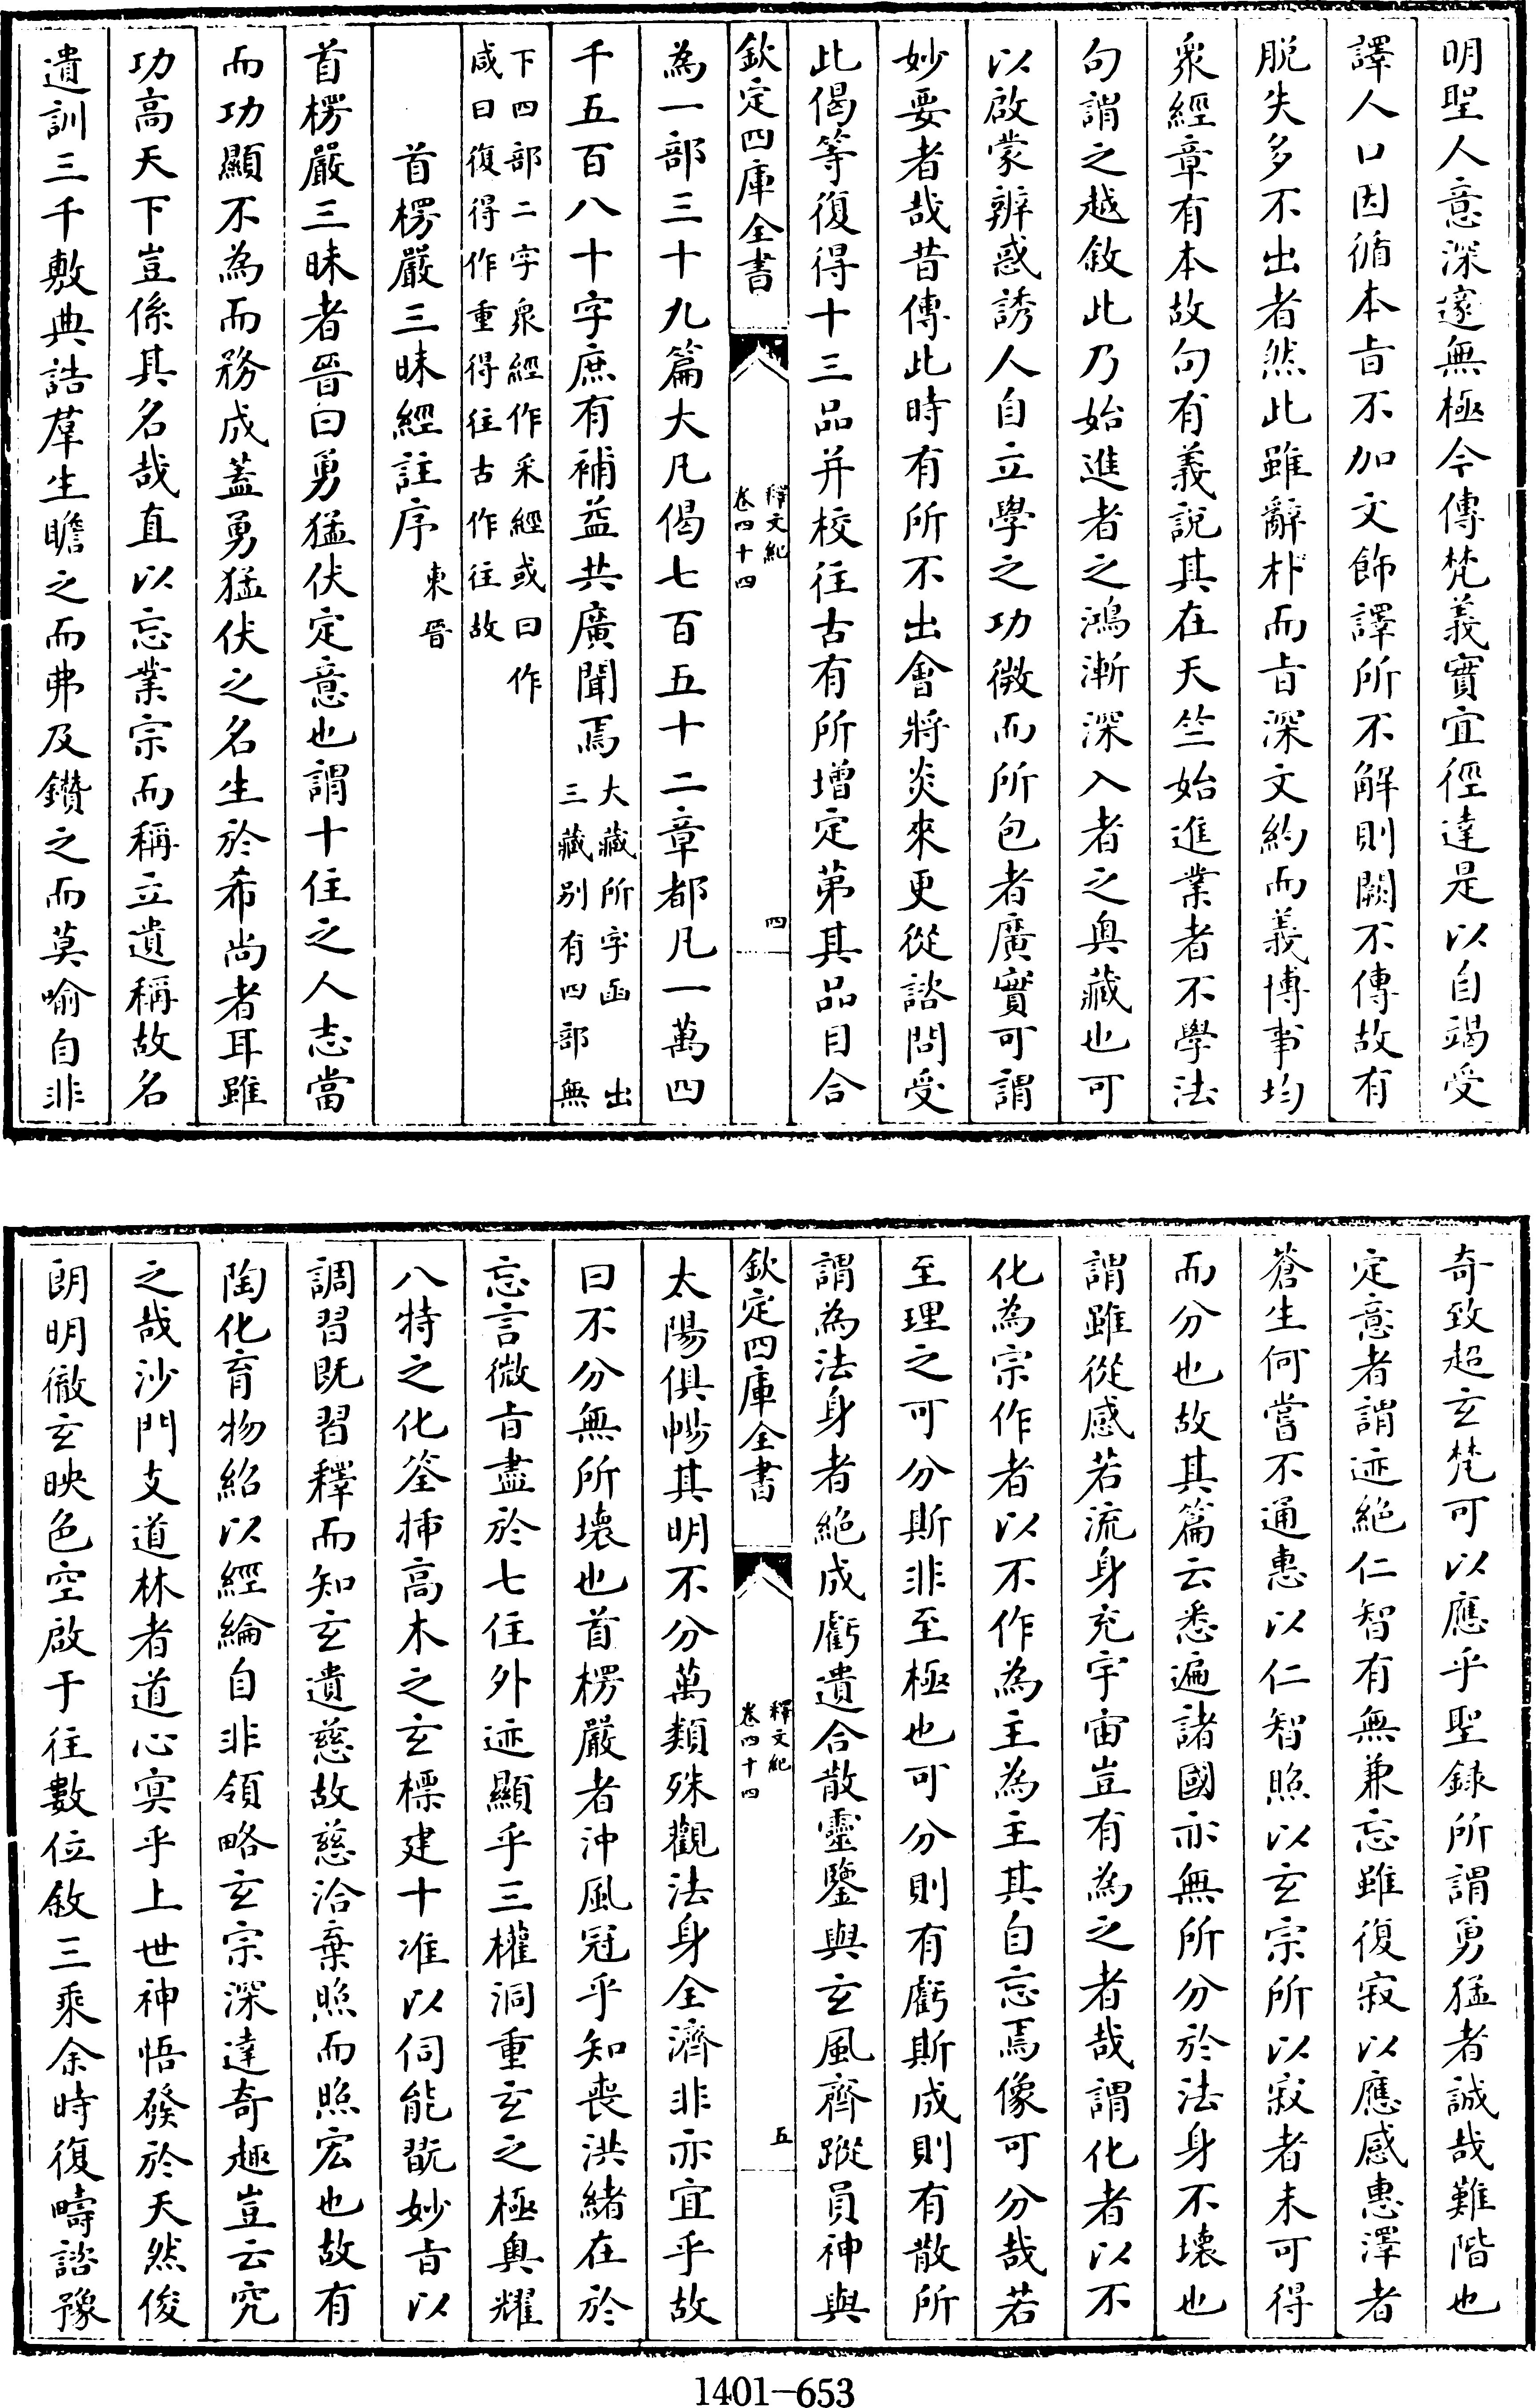 明聖人意深邃無極今傳梵義實宜徑達是以自竭受
譯人口因循本旨不加文飾譯所不解則闕不傳故有
脱失多不出者然此雖辭朴而旨深文約而義博事均
衆經章有本故句有義說其在天竺始進業者不學法
句謂之越敘此乃始進者之鴻漸深入者之奥藏也可
以啟蒙辨惑誘人自立學之功微而所包者廣實可謂
妙要者哉昔傳此時有所不出會將炎來更從諮問受
此偈等復得十三品并校往古有所增定第其品目合
欽定四庫全書
釋文紀
卷四十四
四
為一部三十九篇大凡偈七百五十二章都凡一萬四
千五百八十字庶有補益共廣聞焉大藏所字函 出
三藏别有四部無
下四部二字衆經作采經或曰作
咸曰復得作重得往古作往故
首楞嚴三昧經註序東晉
首楞嚴三昧者晉曰勇猛伏定意也謂十住之人志當
而功顯不為而務成蓋勇猛伏之名生於希尚者耳雖
功高天下豈係其名哉直以忘業宗而稱立遺稱故名
遺訓三千敷典誥羣生瞻之而弗及鑽之而莫喻自非
奇致超玄梵可以應乎聖録所謂勇猛者誠哉難階也
定意者謂迹絶仁智有無兼忘雖復寂以應感惠澤者
蒼生何嘗不通惠以仁智照以玄宗所以寂者未可得
而分也故其篇云悉遍諸國亦無所分於法身不壞也
謂雖從感若流身充宇宙豈有為之者哉謂化者以不
化為宗作者以不作為主為主其自忘焉像可分哉若
至理之可分斯非至極也可分則有虧斯成則有散所
謂為法身者絶成虧遺合散靈鑒與玄風齊蹤員神與
欽定四庫全書
釋文紀
卷四十四
五
太陽俱㡈其明不分萬類殊觀法身全濟非亦宜乎故
曰不分無所壞也首楞嚴者沖風冠乎知喪洪緒在於
忘言微旨盡於七住外迹顯乎三權洞重玄之極奥耀
八特之化筌插高木之玄標建十准以伺能翫妙旨以
調習既習釋而知玄遺慈故慈洽棄照而照宏也故有
陶化育物紹以經綸自非領略玄宗深達奇趣豈云究
之哉沙門支道林者道心冥乎上世神悟發於天然俊
朗明徹玄映色空啟于往數位敘三乘余時復疇諮豫
1401—653